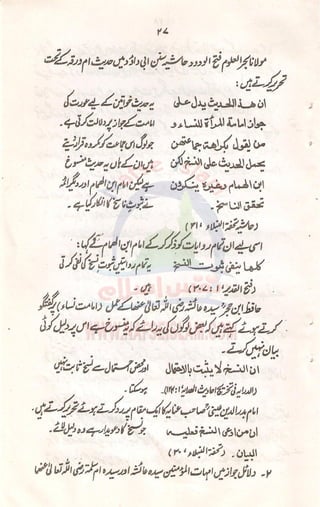 ۲۷
مولانا بحر العلوم فتح الودود حاشیہ سنن ابی داؤد میں حدیث ام ورقہ کے تحت
تحریر کرتے ہیں:
ان هذا الحديث يدل على یہ حدیث خواتین کے لیے عورت کی
جواز امامة المرأة للنساء و امامت کے جواز پر دلالت کرتی ہے۔
من يقول بكراهة جماعتهن جو لوگ اس جماعت کو مکروہ قرار دیتے
يحمل الحديث على النسخ لكن ہیں ان کے ہاں یہ حدیث منسوخ
ابن الهمام وغيره ينكرون ہے لیکن امام ابن الہمام اور دیگر نے
تحقق الناسخ۔ ثبوت ناسخ کا انکار کیا ہے۔
(حاشیہ تحفۃ النبلاء ۲۱)
اسی لیے ان تمام روایات کو ذکر کر کے امام ابن الہمام نے کہا:
كلها ينفى ثبوت النسخ یہ تمام روایتیں ثبوت نسخ کی نفی کرتی
(فتح القدیر ۱: ۳۰۷) ہیں۔
حافظ ابن حجر سیدہ عائشہ رضی اللہ تعالیٰ عنہا کے عمل (امامت نساء) پر گفتگو
کرتے ہوئے کہتے ہیں کہ بعض لوگوں کی یہ رائے کہ یہ منسوخ ہے اس پر دلیل کوئی
بیان نہیں کرتے۔
ان النسخ لا يثبت بالاحتمال اور محض احتمال سے نسخ ثابت نہیں
(الدرایہ فی تخریج احادیث الہدایہ ۱: ۱۶۹) ہو سکتا۔
امام بدر الدین عینی صاحب عنایہ کا ایک مقام پر رد کرتے ہوئے تحریر کرتے ہیں۔
ان من ادعى النسخ فعليه جو نسخ کا دعویدار ہے وہ دلیل لائے۔
البيان۔ (تحفۃ النبلاء ۳۰)
۲۔ دلائل جواز میں امہات المؤمنین سیدہ عائشہ اور سیدہ ام سلمۃ رضی اللہ تعالیٰ عنہا